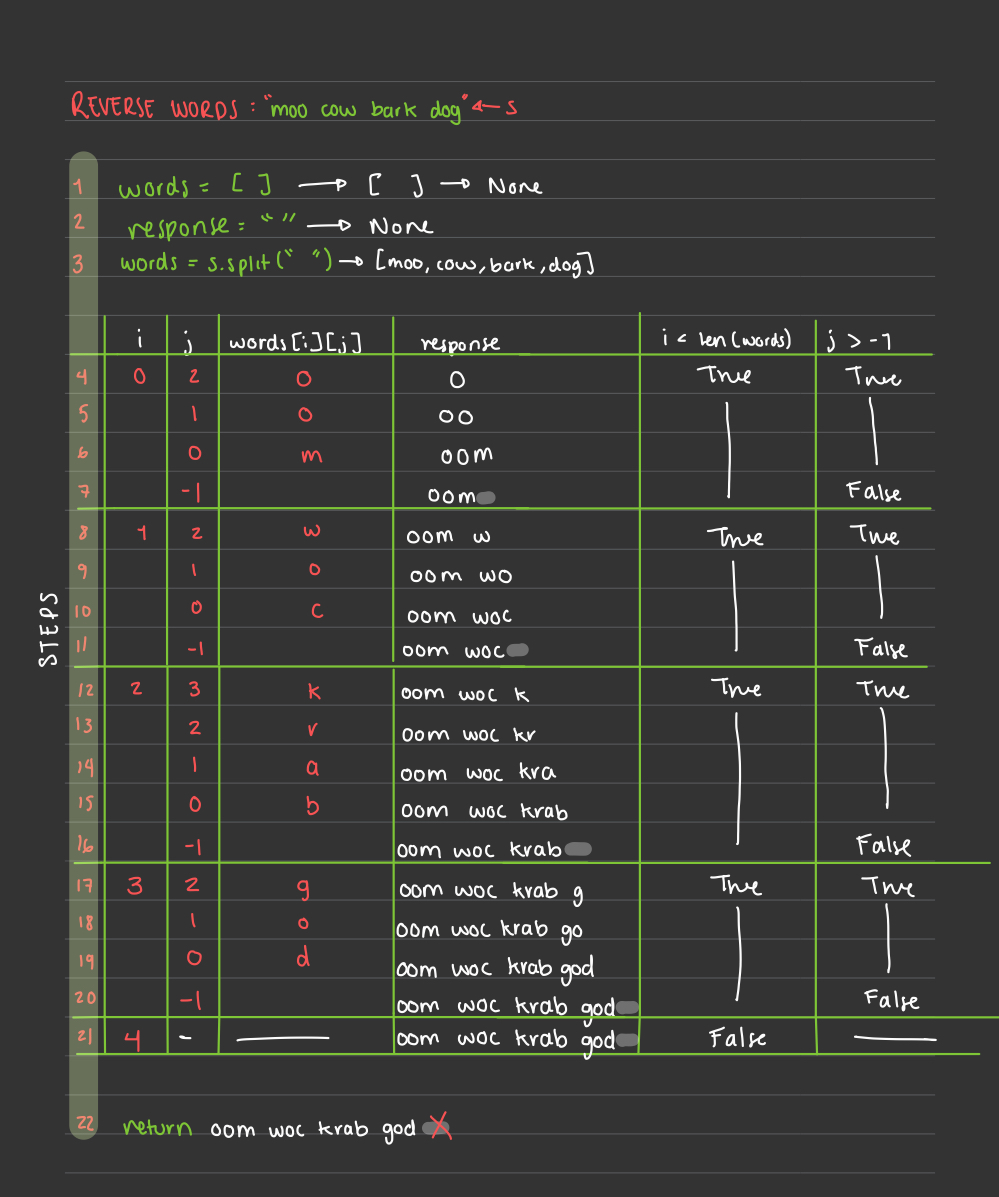 REVERSE WORDS : "moo cow bark dog" ← s
1 words = [ ] → [ ] → None
2 response = " " → None
3 words = s.split(" ") → [moo, cow, bark, dog]
i j words[i][j] response i < len(words) j > -1
4 0 2 o o True True
5 1 o oo
6 0 m oom
7 -1 oom False
8 1 2 w oom w True True
9 1 o oom wo
10 0 c oom woc
11 -1 oom woc False
STEPS
12 2 3 k oom woc k True True
13 2 r oom woc kr
14 1 a oom woc kra
15 0 b oom woc krab
16 -1 oom woc krab False
17 3 2 g oom woc krab g True True
18 1 o oom woc krab go
19 0 d oom woc krab god
20 -1 oom woc krab god False
21 4 - — oom woc krab god False —
22 return oom woc krab god X